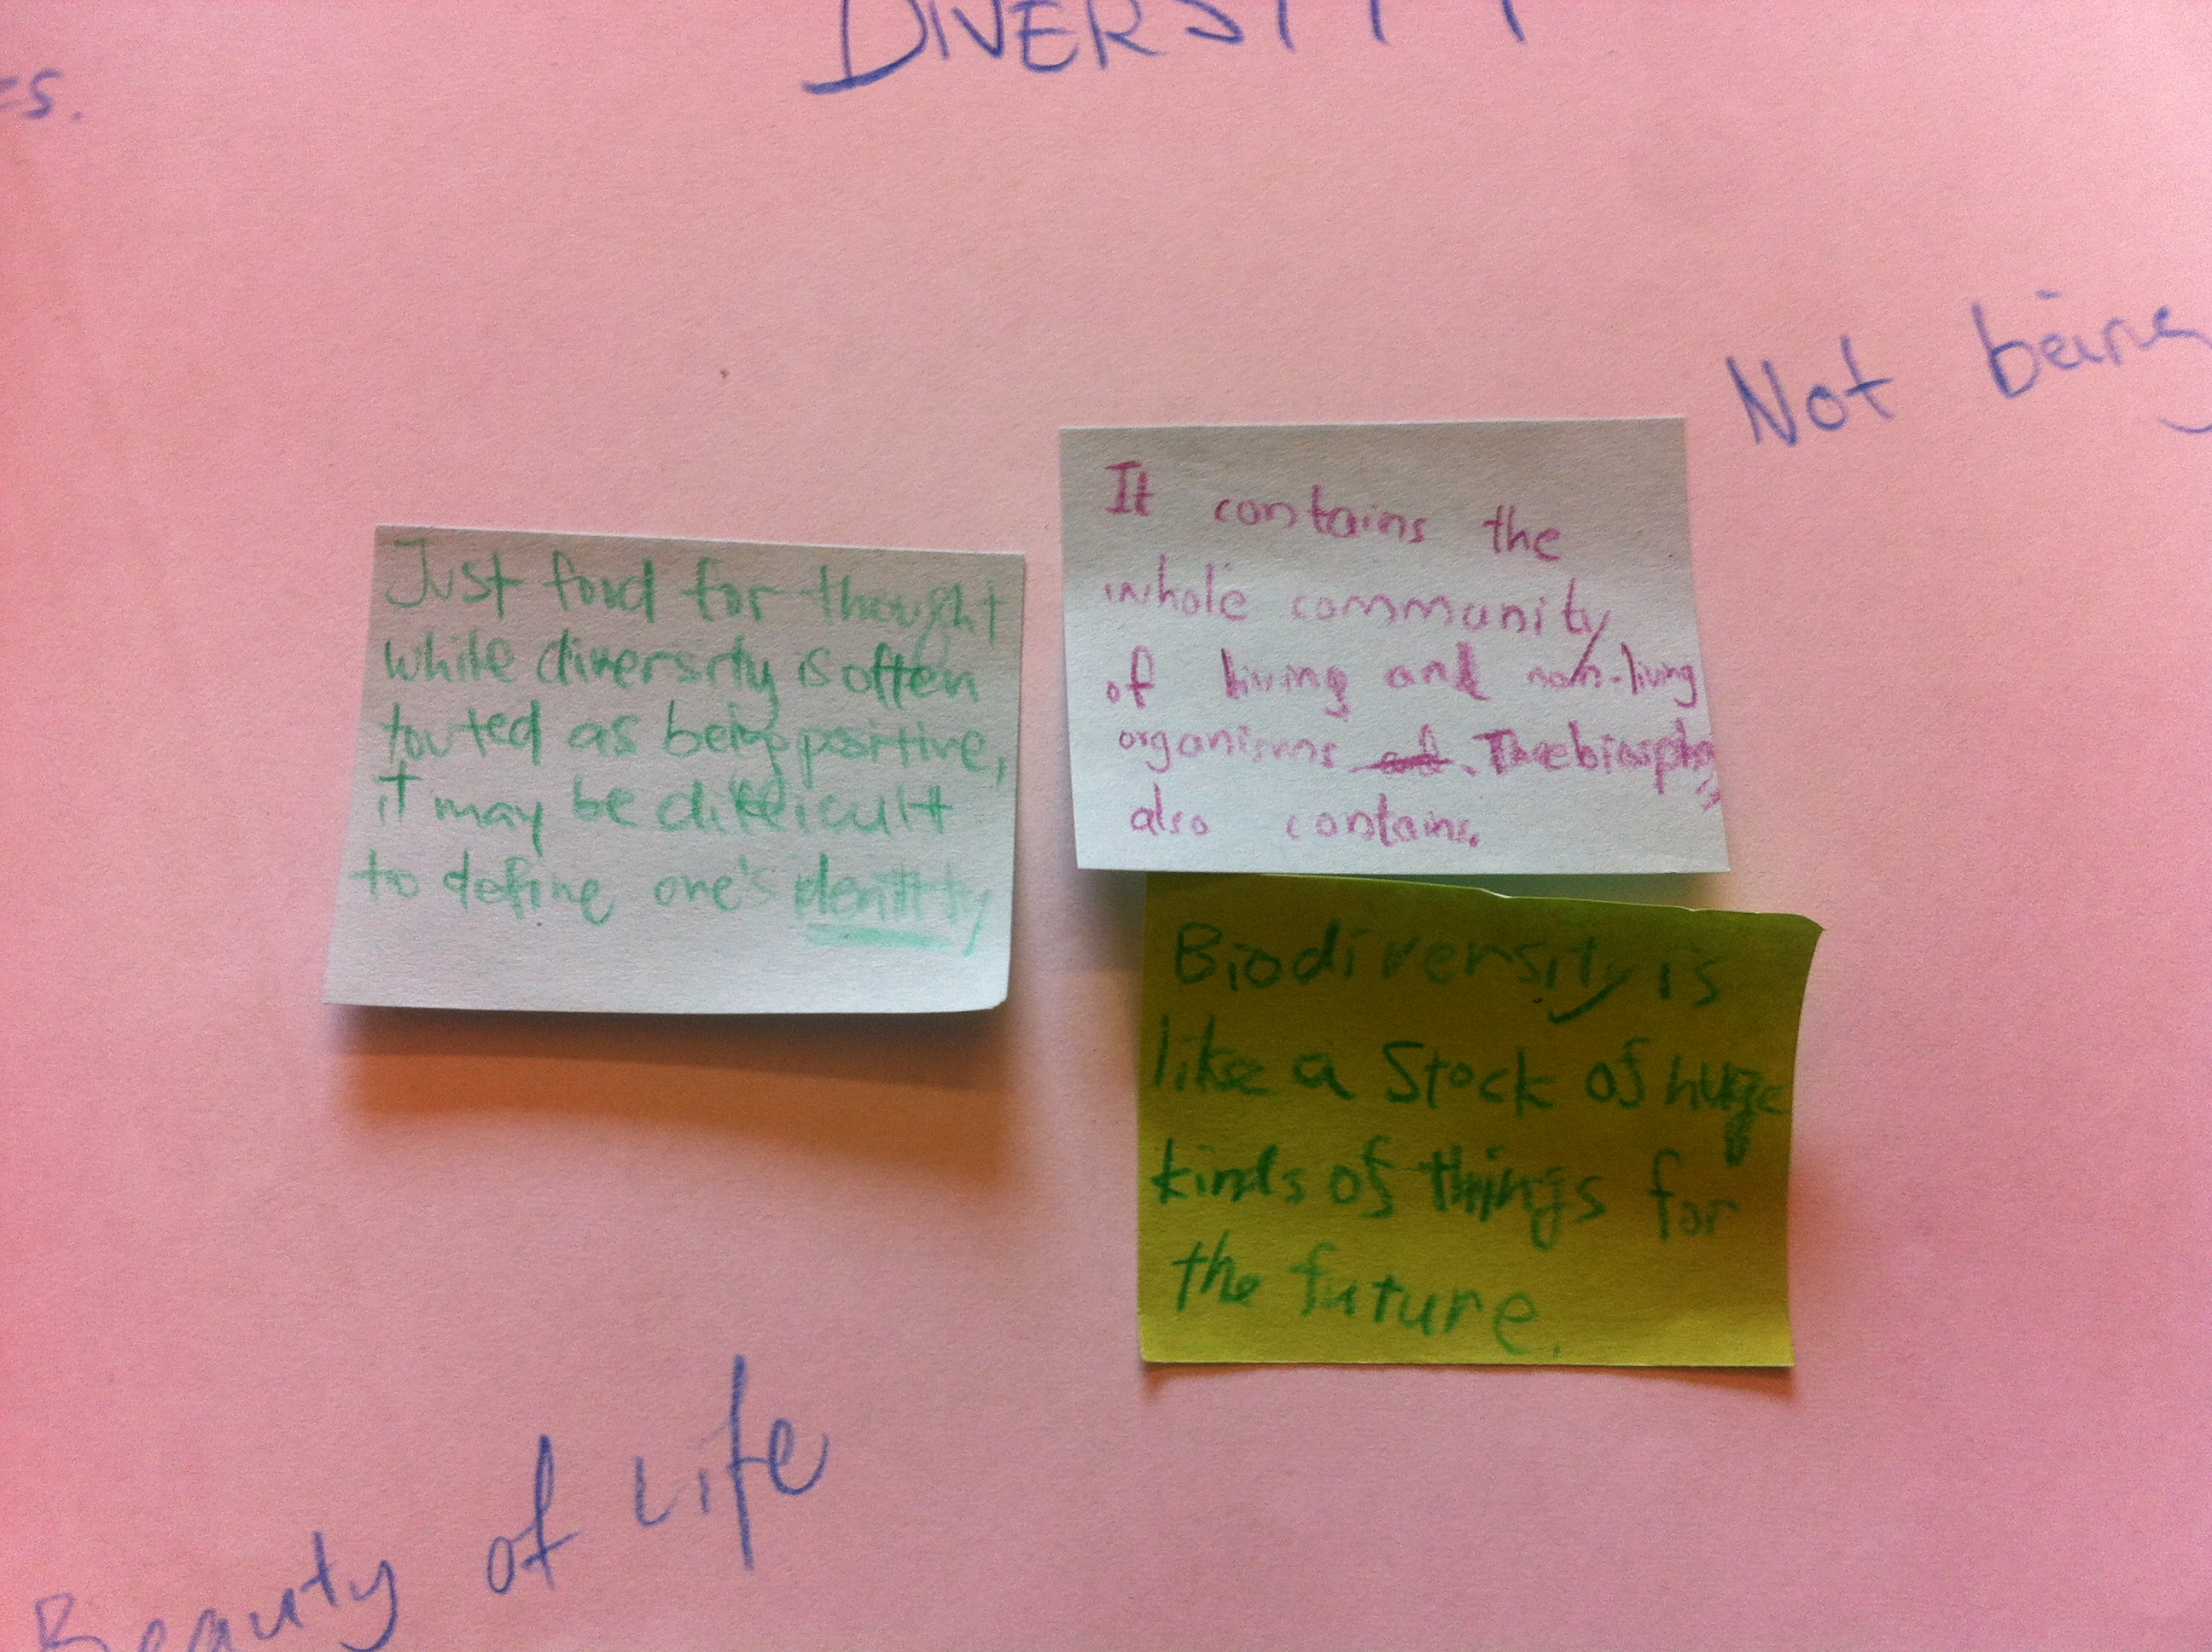 DIVERSITY
es.
Not being
Just food for thought
while diversity is often
touted as being positive,
it may be difficult
to define one's identity
It contains the
whole community
of living and non-living
organisms and. The
also contains.
Biodiversity is
like a Stock of huge
kinds of things for
the future.
Beauty of Life